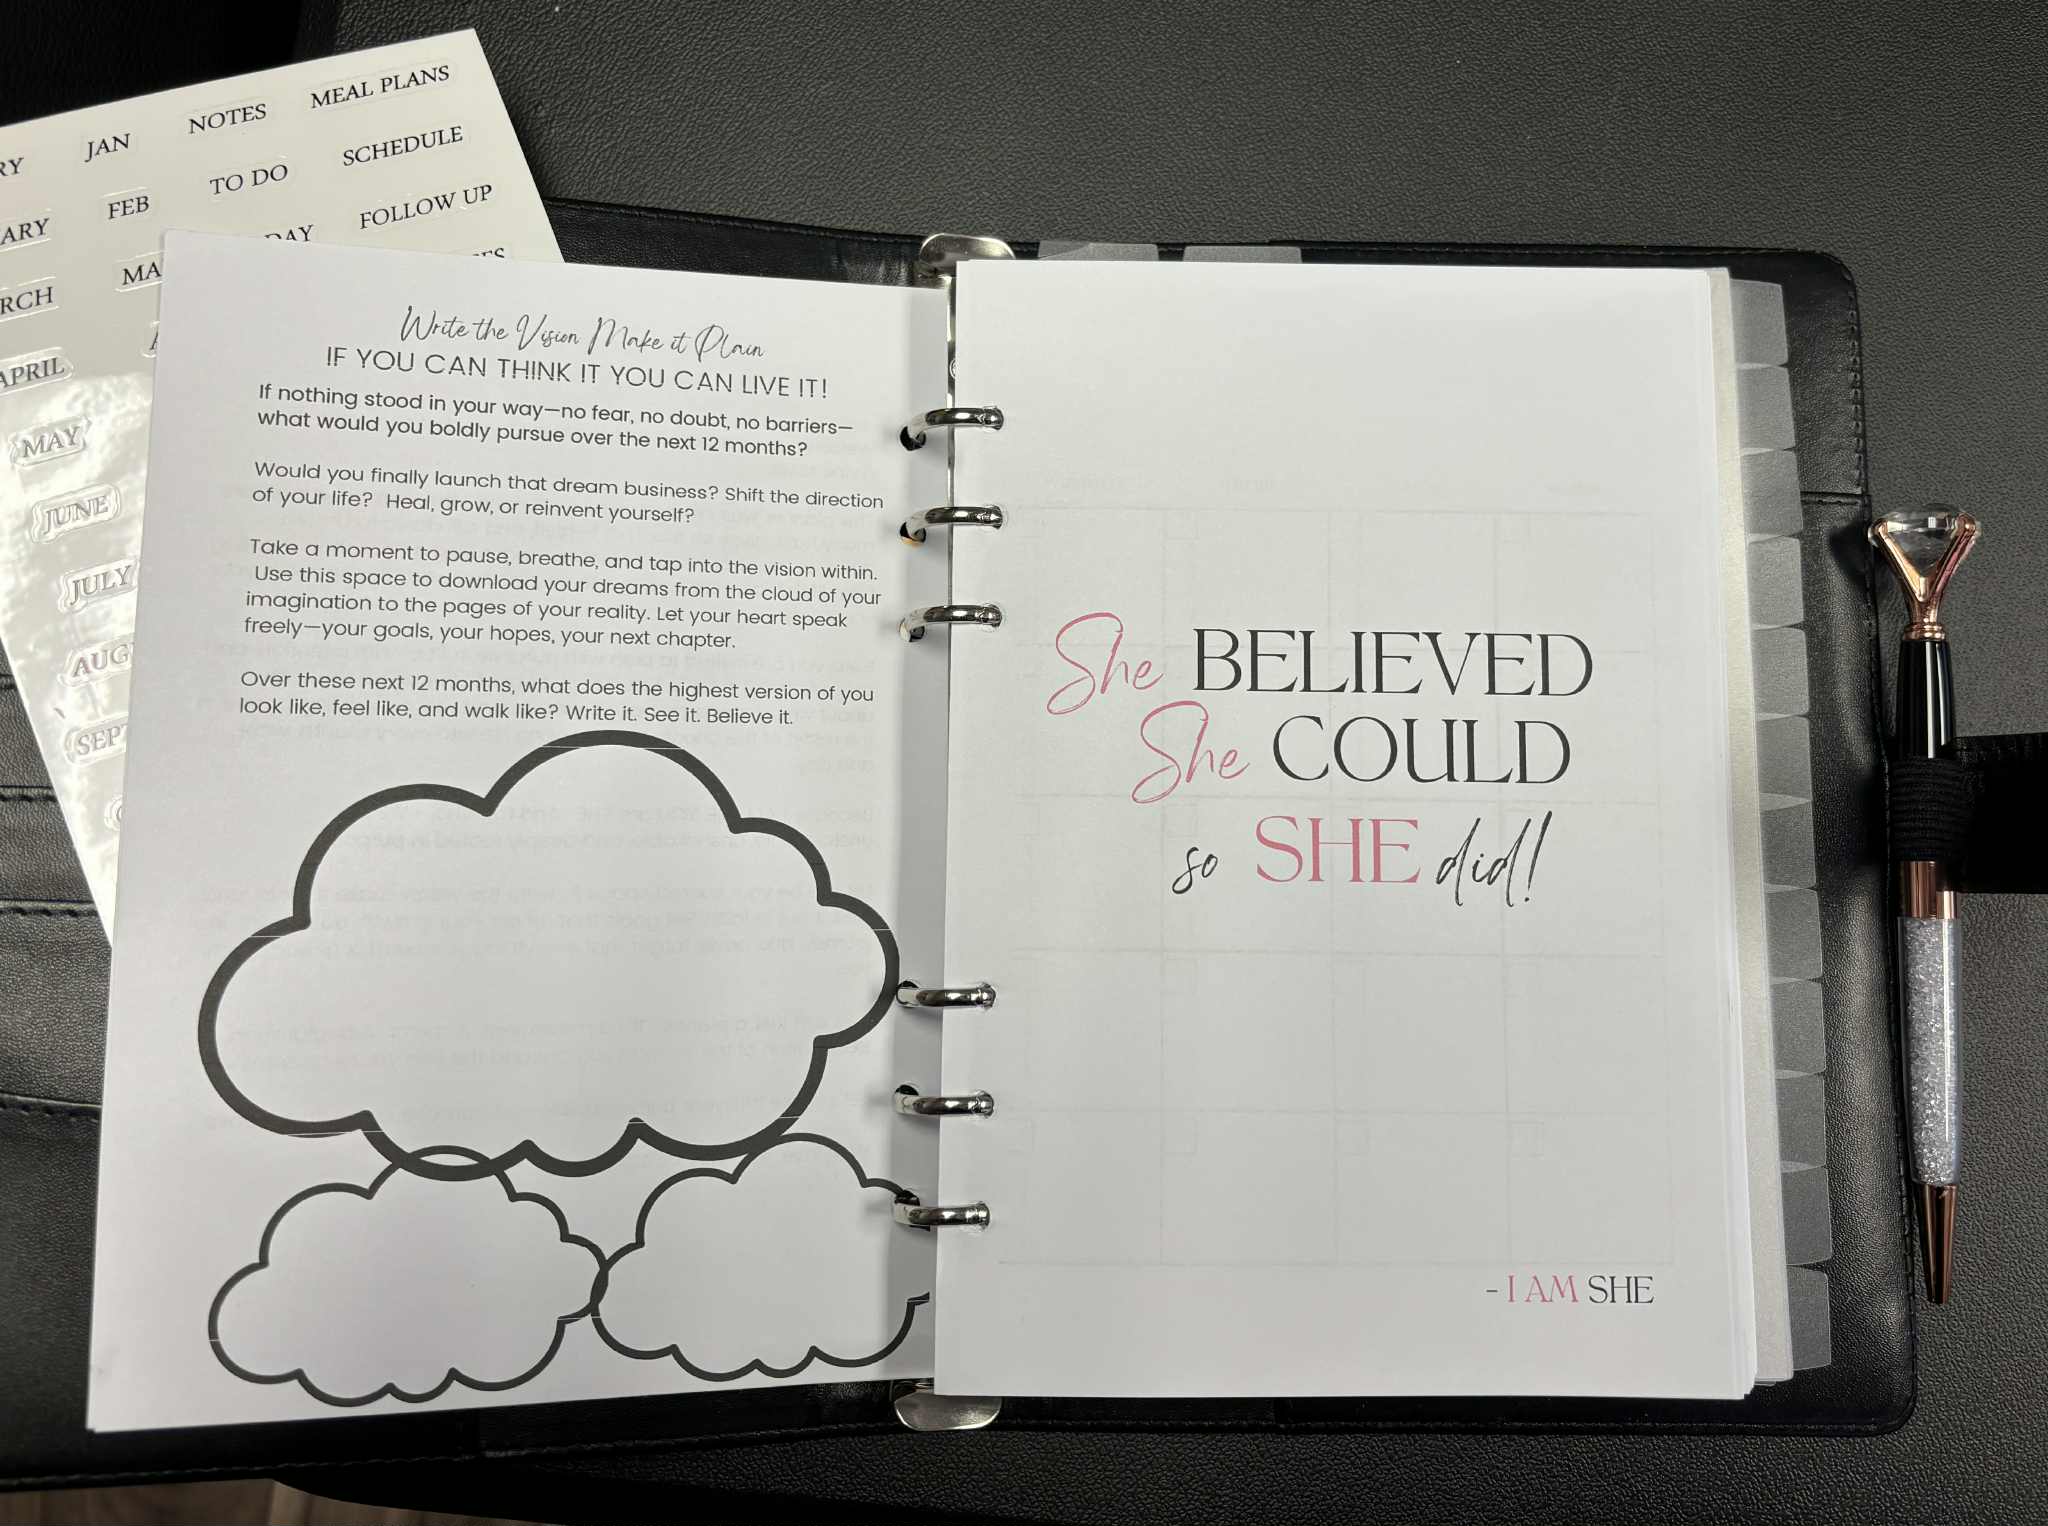 JAN
NOTES
MEAL PLANS
FEB
TO DO
SCHEDULE
FOLLOW UP
APRIL
MAY
JUNE
JULY
Write the Vision Make it Plain
IF YOU CAN THINK IT YOU CAN LIVE IT!
If nothing stood in your way—no fear, no doubt, no barriers—
what would you boldly pursue over the next 12 months?
Would you finally launch that dream business? Shift the direction
of your life? Heal, grow, or reinvent yourself?
Take a moment to pause, breathe, and tap into the vision within.
Use this space to download your dreams from the cloud of your
imagination to the pages of your reality. Let your heart speak
freely—your goals, your hopes, your next chapter.
Over these next 12 months, what does the highest version of you
look like, feel like, and walk like? Write it. See it. Believe it.
She BELIEVED
She COULD
so SHE did!
- I AM SHE